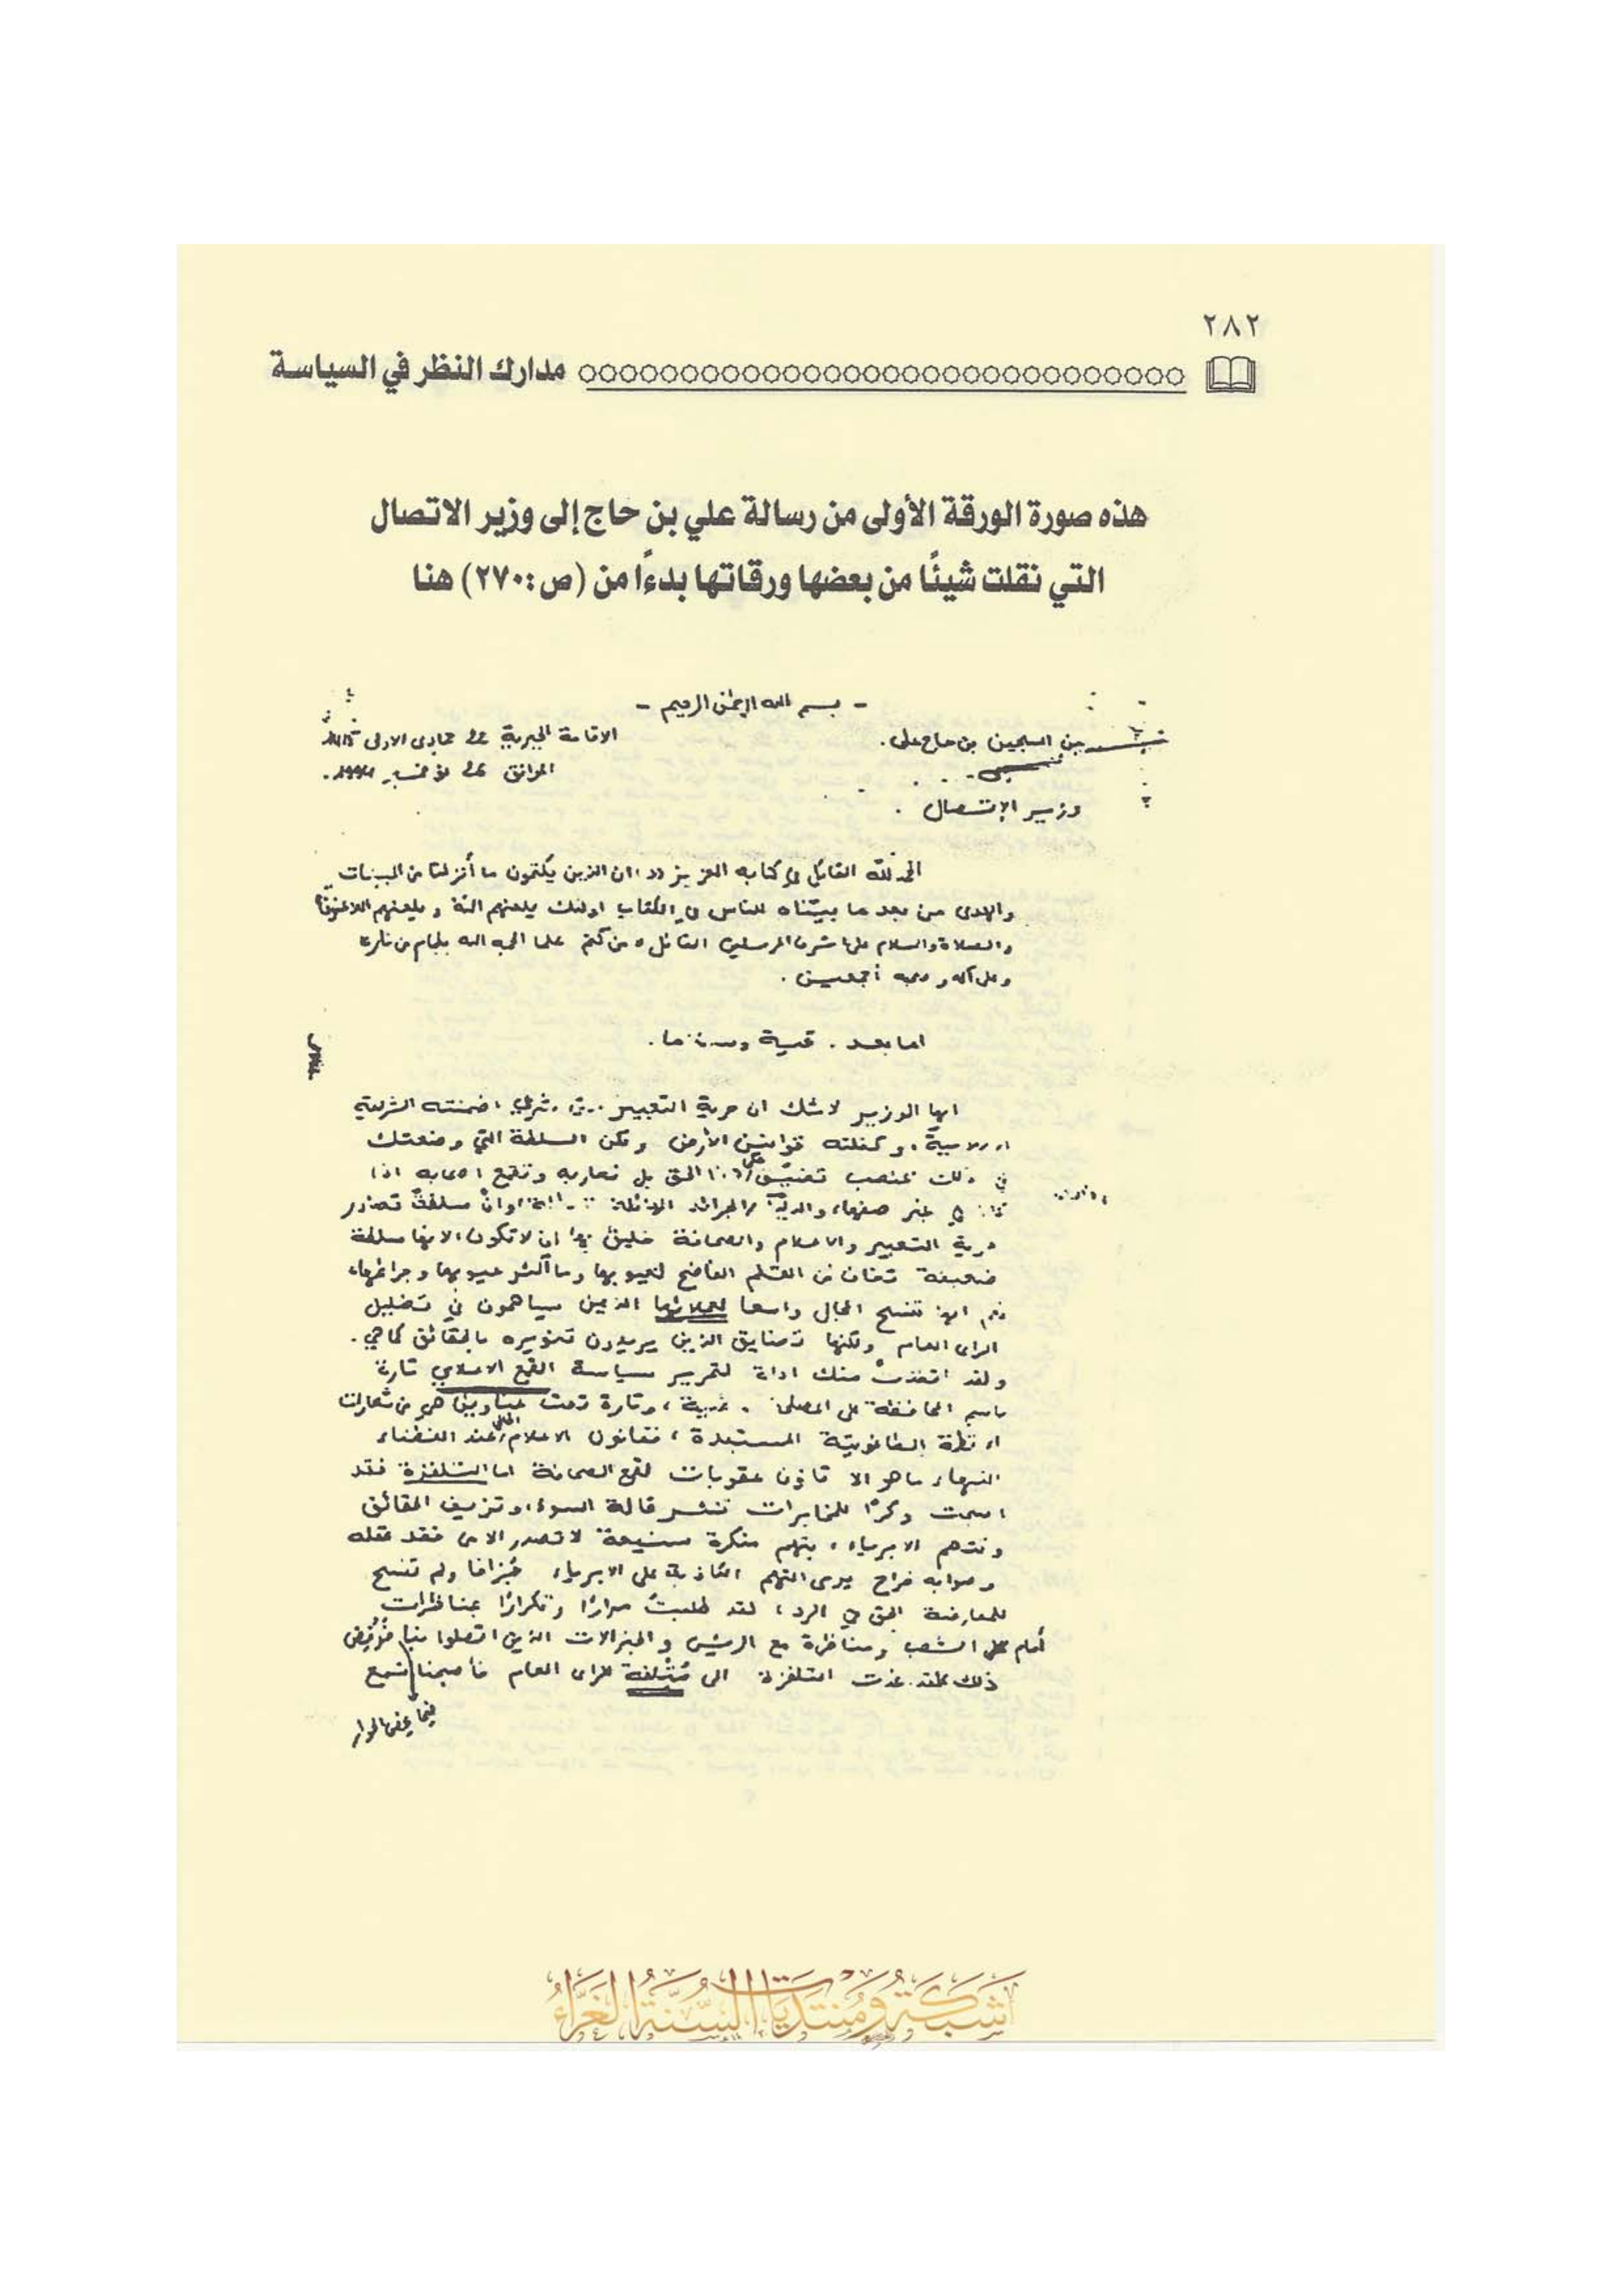 ٢٨٢
مدارك النظر في السياسة
هذه صورة الورقة الأولى من رسالة علي بن حاج إلى وزير الاتصال
التي نقلت شيئًا من بعضها ورقاتها بدءًا من (ص:٢٧٠) هنا
- بسم الله الرحمن الرحيم -
من السجين بن حاج علي. الاقامة الجبرية في جمادى الاولى
الموافق نوفمبر
وزير الإتصال .
الحمد لله القائل في كتابه العزيز ان الذين يكتمون ما أنزلنا من البينات
والهدى من بعد ما بيّناه للناس في الكتاب اولئك يلعنهم الله و يلعنهم اللاعنون
والصلاة والسلام على اشرف المرسلين القائل من كتم علما الجمه الله بلجام من نار
وعلى آله و صحبه أجمعين .
اما بعد .
ايها الوزير لا شك ان حرية التعبير شرعي ضمنته الشريعة
وكفلته قوانين الأرض ولكن السلطة التي وضعتك
في ذلك المنصب تضيّق على الحق بل تحاربه وتقمع اصحابه اذا
وان سلطة تصادر
حرية التعبير والاعلام والصحافة خليق بها ان لا تكون الا سلطة
ضعيفة تخاف من القلم الفاضح لعيوبها وما أكثر عيوبها وجرائمها،
تفسح المجال واسعا لعملائها الذين يساهمون في تضليل
الراى العام ولكنها تضايق الذين يريدون تنويره بالحقائق كما هي .
ولقد اتخذت منك اداة لتمرير سياسة القمع الاعلامي تارة
باسم المحافظة على المصلحة ، وتارة تحت عناوين هي من شعارات
الطاغوتية المستبدة ، فقانون الاعلام الحالي عند الفضلاء
النبهاء ما هو الا قانون عقوبات لقمع الصحافة اما التلفزة فقد
اصبحت وكرًا للمخابرات تنشر قالة السوء وتزيف الحقائق
وتتهم الابرياء ، بتهم منكرة شنيعة لا تصدر الا من فقد عقله
وصوابه فراح يرمى التهم الكاذبة على الابرياء جُزافا ولم تفسح
للمعارضة الحق في الرد ، لقد طلبتُ مرارًا وتكرارًا بمناظرات
أمام الشعب ومناظرة مع الرئيس والجنرالات الذين اتصلوا بنا فرُفِض
ذلك لقد غدت التلفزة الى مُتْلفة للراى العام فأصبحنا نسمع
فيما يخص الحوار
شبكة ومنتديات السنة الغراء